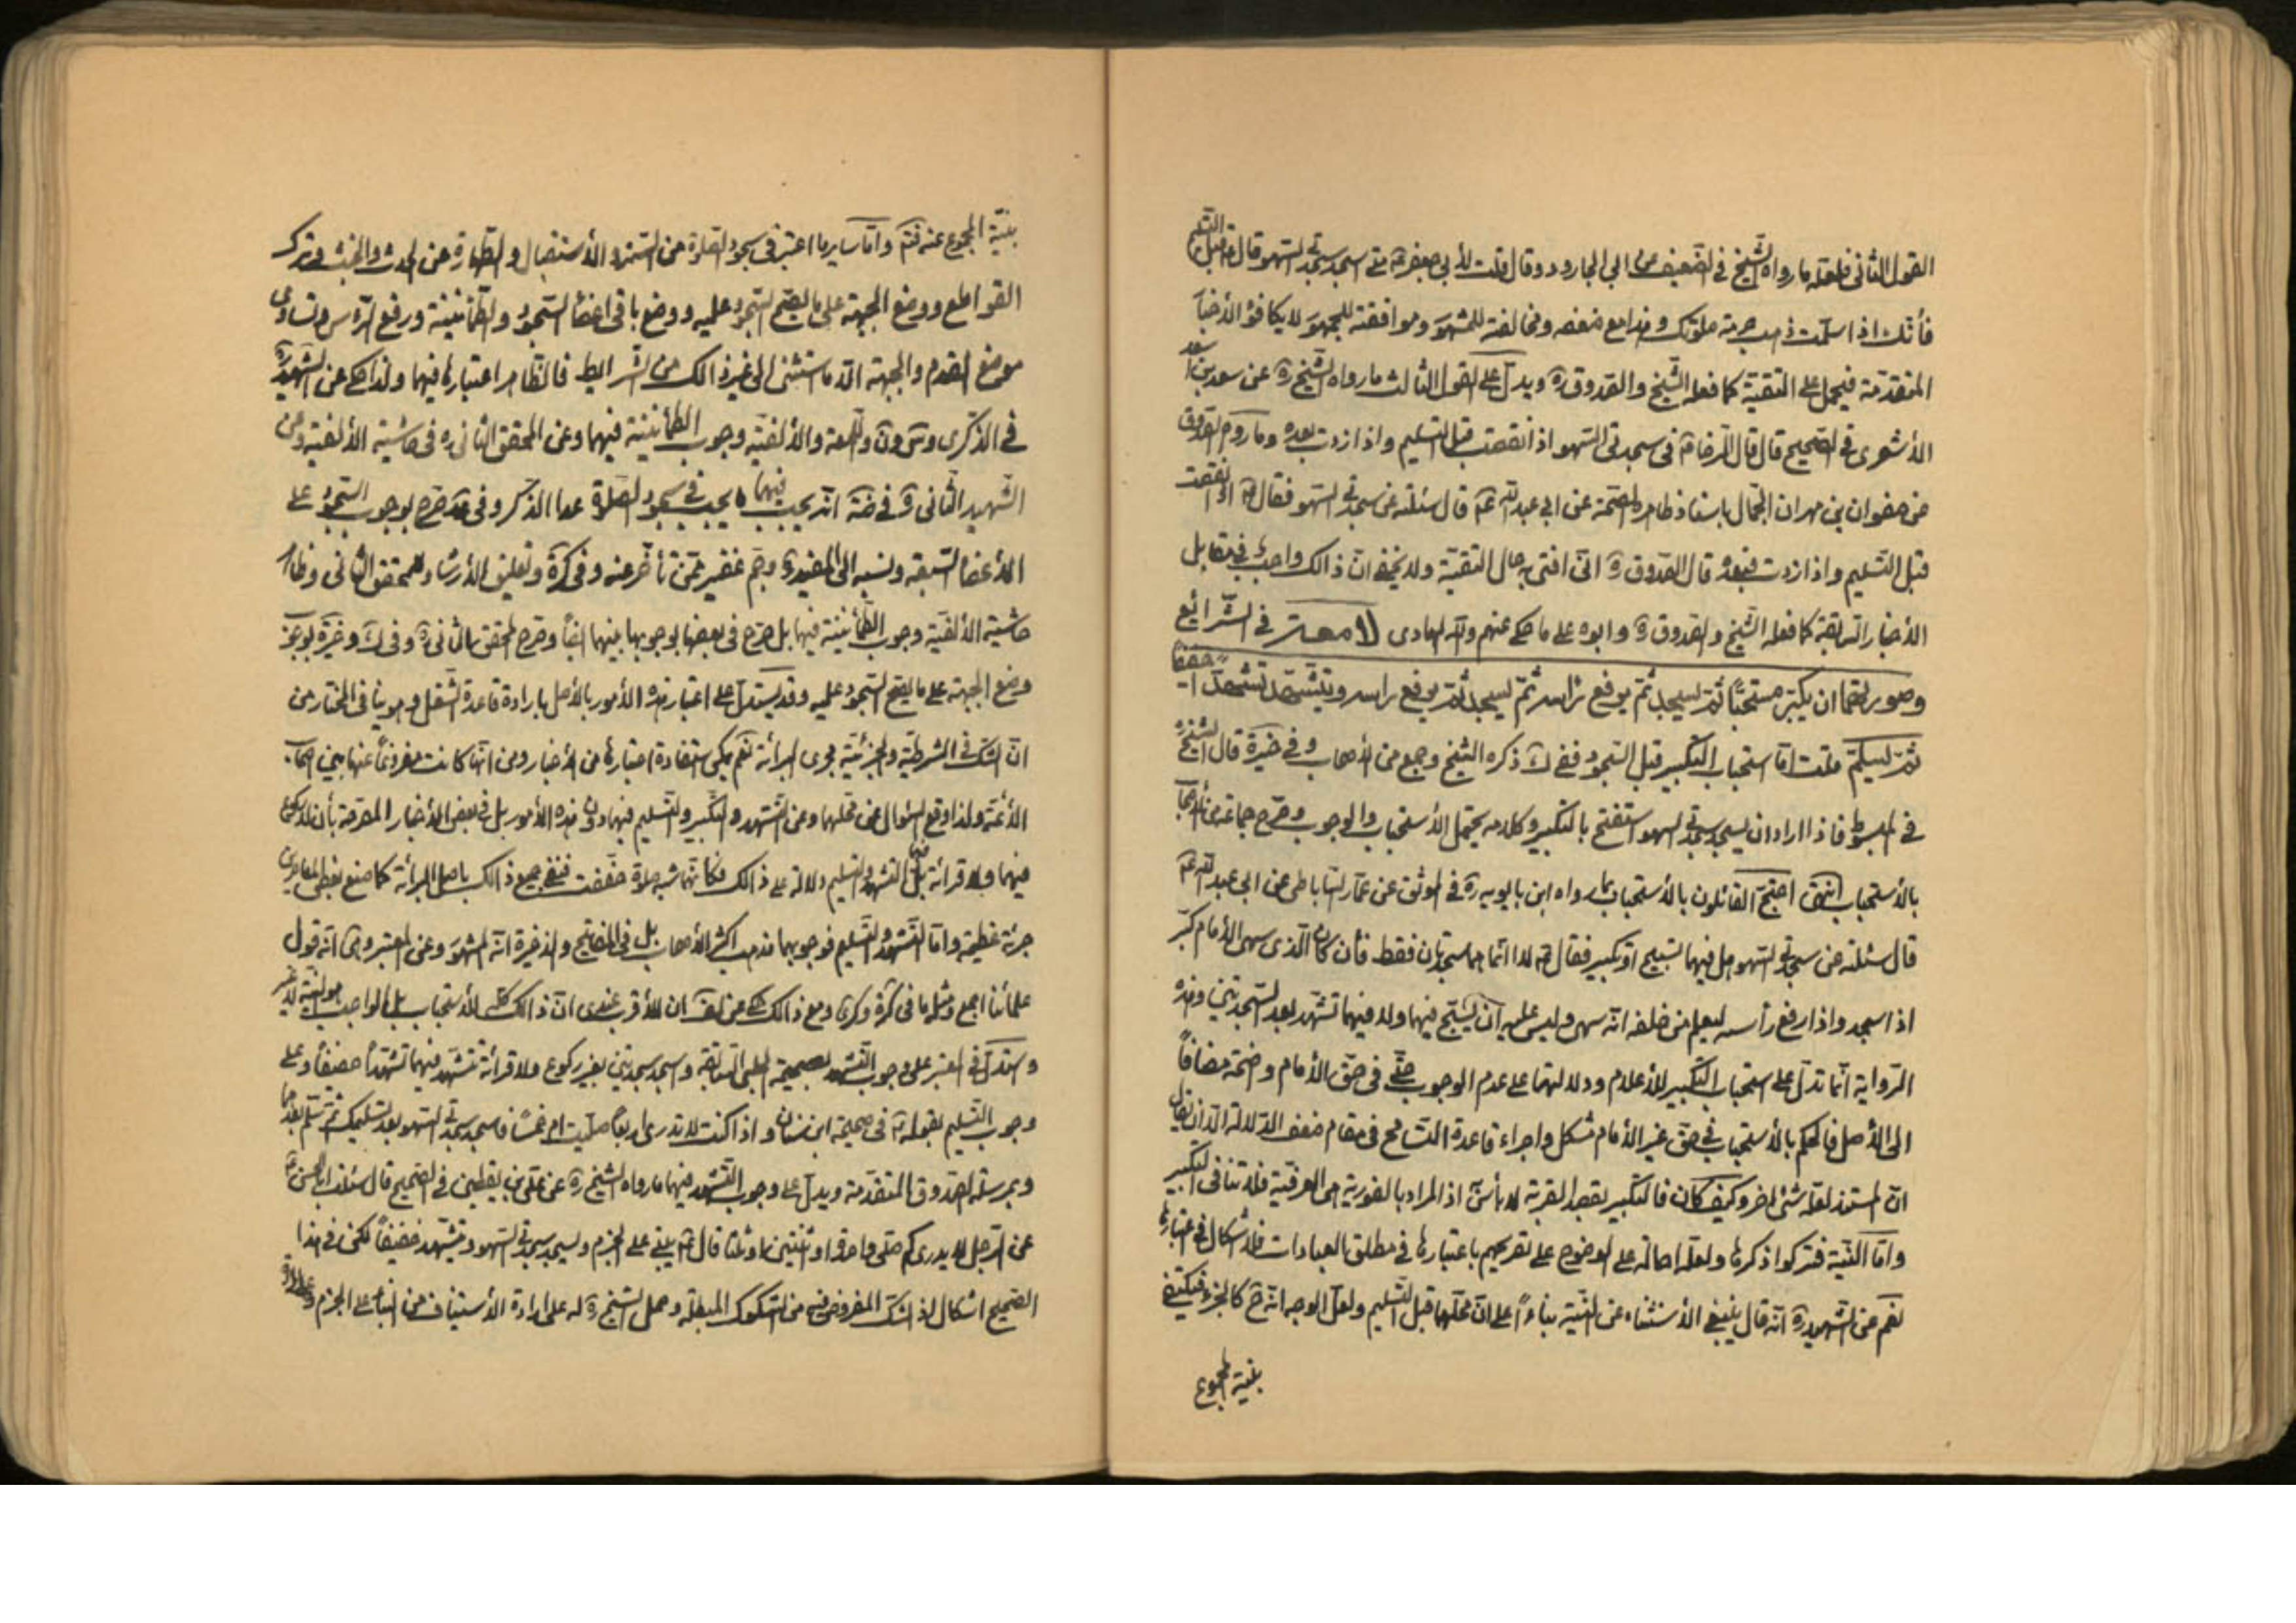 القول الثانى فلعله ما رواه الشيخ فى الضعيف عن ابى الجارود وقال قلت لأبى جعفر ع متى اسجد سجدتى السهو قال ع قبل التسليم
فأنك اذا سلمت ذهبت حرمة صلوتك وهذا مع ضعفه ومخالفته للمشهور وموافقته للجمهور لا يكافؤ الأخبار
المتقدمة فيحمل على التقية كما فعله الشيخ والصدوق ره ويدل على القول الثالث ما رواه الشيخ ره عن سعد بن سعد
الأشعرى فى الصحيح قال قال الرضا ع فى سجدتى السهو اذا نقصت قبل التسليم واذا زدت بعده وما رواه الصدوق
عن صفوان بن مهران الجمال باسناد ظاهره الصحة عن ابى عبد الله ع قال سئلته عن سجدتى السهو فقال ع اذا نقصت
قبل التسليم واذا زدت فبعده قال الصدوق ره انى افتى به حال التقية ولا يخفى ان ذالك واجب فى مقابل
الأخبار السابقة كما فعله الشيخ والصدوق ره وابوه على ما حكى عنهم والله الهادى لامعة فى الشرائع
وصورتهما ان يكبر مستحبًا ثم يسجد ثم يرفع رأسه ثم يسجد ثم يرفع رأسه ويتشهد تشهدًا خفيفًا
ثم يسلم قلت اما استحباب التكبير قبل السجود ففى ك ذكره الشيخ وجمع من الأصحاب وفى خيرة قال الشيخ
فى المبسوط فاذا اراد ان يسجد سجدتى السهو استفتح بالتكبير وكلامه يحتمل الأستحباب والوجوب وصرح جماعة من الأصحاب
بالأستحباب انتهى احتج القائلون بالأستحباب بما رواه ابن بابويه ره فى الموثق عن عمار الساباطى عن ابى عبد الله ع
قال سئلته عن سجدتى السهو هل فيهما تسبيح او تكبير فقال ع لا انما هما سجدتان فقط فأن كان الذى سهى الأمام كبر
اذا سجد واذا رفع رأسه ليعلم من خلفه انه سهى وليس عليه ان يسبح فيهما ولا فيهما تشهد بعد السجدتين وهذه
الرواية انما تدل على استحباب التكبير للأعلام ودلالتها على عدم الوجوب حتى فى حق الأمام واضحة مضافًا
الى الأصل فالحكم بالأستحباب فى حق غير الأمام مشكل واجراء قاعدة التسامح فى مقام ضعف الدلالة الا ان يقال
ان المستند لعله شئ اخر وكيف كان فالتكبير بقصد القربة لا بأس اذ المراد بالفورية هى العرفية فلا تنافى التكبير
واما النية فتركوا ذكرها ولعله احالة على الوضوح على تصريحهم باعتبارها فى مطلق العبادات فلا اشكال فى اعتبارها
نعم عن الشهيد ره انه قال ينبغى الأستثناء عن النية بناءً على ان محلها قبل التسليم ولعل الوجه انه ح كالجزء فيكتفى
بنية المجموع
بنية المجموع عنه فتم واما ساير ما اعتبر فى سجود الصلوة من الستر والأستقبال والطهارة عن الحدث والخبث وترك
القواطع ووضع الجبهة على ما يصح السجود عليه ووضع باقى اعضاء السجود والطمأنينة ورفع الرأس وتساوى
موضع القدم والجبهة الا ما استثنى الى غير ذالك من الشرايط فالظاهر اعتبارها فيهما ولذا حكى عن الشهيد ره
فى الذكرى وس ون واللمعة والألفية وجوب الطمأنينة فيهما وعن المحقق الثانى ره فى حاشية الألفية وعن
الشهيد الثانى ره فى ضه انه يجب فيهما ما يجب فى سجود الصلوة عدا الذكر وفى صرح بوجوب السجود على
الأعضاء السبعة ونسبه الى المفيد ره وجم غفير ممن تأخر عنه وفى كرة وتعليق الأرشاد للمحقق الثانى وظاهر
حاشية الألفية وجوب الطمأنينة فيهما بل صرح فى بعضها بوجوبها بينهما ايضًا وصرح المحقق الثانى ره وفى ك وخيرة بوجوب
وضع الجبهة على ما يصح السجود عليه وقد يستدل على اعتبار هذه الأمور بالأصل بارادة قاعدة الشغل وهو ينافى المختار من
ان الشك فى الشرطية والجزئية مجرى البرائة نعم يمكن استفادة اعتبارها من الأخبار ومن انها كانت مفروغًا عنها بين اصحاب
الأئمة ولذا وقع السؤال عن محلهما وعن التشهد والتكبير والتسليم فيهما دون هذه الأمور بل فى بعض الأخبار المصرحة بأن لا ركوع
فيهما ولا قرائة بل فيهما التشهد والتسليم دلالة على ذالك فكانهما شبه صلوة خففت فنفى جميع ذالك باصل البرائة كما صنع بعض المعاصرين
جرئة عظيمة واما التشهد والتسليم فوجوبهما مذهب اكثر الأصحاب بل فى المفاتيح والذخيرة انه المشهور وعن المعتبر وهى انه قول
علمائنا اجمع ومثله ما فى كرة وكرى ومع ذالك حكى عن لف ان الأقرب عندى ان ذالك كله للأستحباب بل الواجب هو النية لا غير
واستدل فى المعتبر على وجوب التشهد بصحيحة الحلبى السابقة واسجد سجدتين بغير ركوع ولا قرائة تتشهد فيهما تشهدًا خفيفًا وعلى
وجوب التسليم بقوله ع فى صحيحة ابن سنان واذا كنت لا تدرى اربعًا صليت ام خمسًا فاسجد سجدتى السهو بعد تسليمك ثم سلم بعدهما
وبمرسلة الصدوق المتقدمة ويدل على وجوب التشهد فيهما ما رواه الشيخ ره عن على بن يقطين فى الصحيح قال سئلت ابا الحسن ع
عن الرجل لا يدرى كم صلى واحدة او ثنتين او ثلثًا قال ع يبنى على الجزم ويسجد سجدتى السهو ويتشهد خفيفًا لكن فى هذا
الصحيح اشكال اذ الشك المفروض فيه من الشكوك المبطلة وحمل الشيخ ره له على ارادة الأستيناف من البناء على الجزم